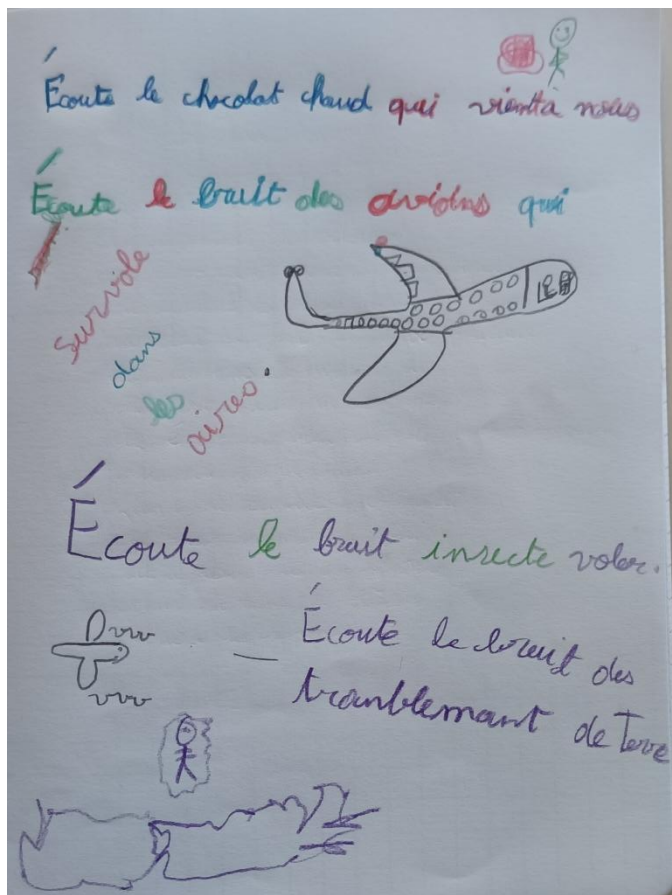 Écoute le chocolat chaud qui vientà nous
Écoute le bruit des avions qui
survole
dans
les
aires.
Écoute le bruit insecte voler.
vvv
vvv
— Écoute le bruit des
tranblemant de Terre